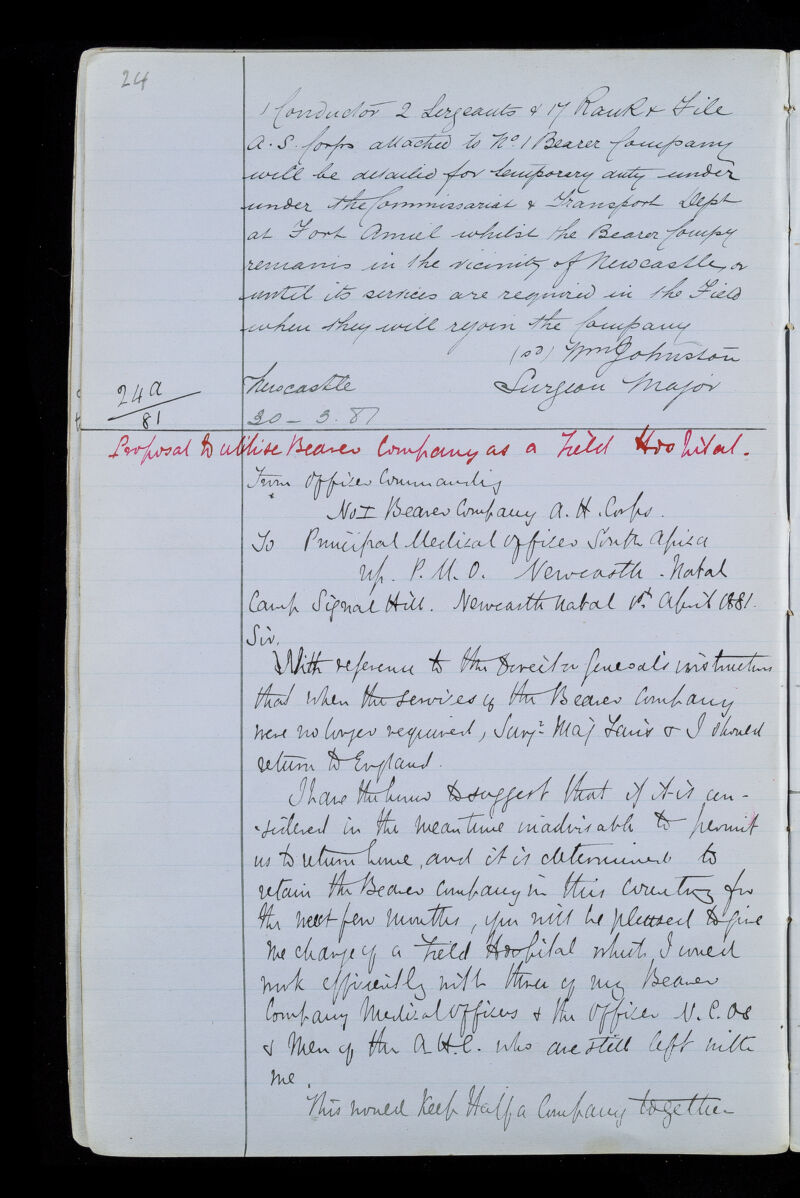 24
1 Conductor 2 Sergeants & 17 Rank & File
A. S. Corps attached to No. 1 Bearer Company
will be detailed for temporary duty under
under the Commissariat & Transport Dept
at Fort Amiel whilst the Bearer Compy
remains in the vicinity of Newcastle, or
until its services are required in the Field
when they will rejoin the Company
(sd) Wm Johnston
24a
81
Newcastle Surgeon Major
30 - 3. 81
Proposal to utilise Bearer Company as a Field Hospital.
From Officer Commanding
No I Bearer Company A. H. Corps.
To Principal Medical Officer South Africa
P. M. O. Newcastle - Natal
Camp Signal Hill. Newcastle Natal 1st April 1881.
Sir,
With reference to the Director General's instructions
that when the services of the Bearer Company
were no longer required, Surgn Maj & I should
return to England.
I have the honor to suggest that if it is con-
-sidered in the meantime inadvisable to permit
us to return home, and it is determined to
retain the Bearer Company in this country for
the next few months, you will be pleased to give
me charge of a Field Hospital which I could
work efficiently with three of my Bearer
Company Medical Officers & the Officer N. C. Os
& Men of the A. H. C. who are still left with
me.
This would keep Half a Company together